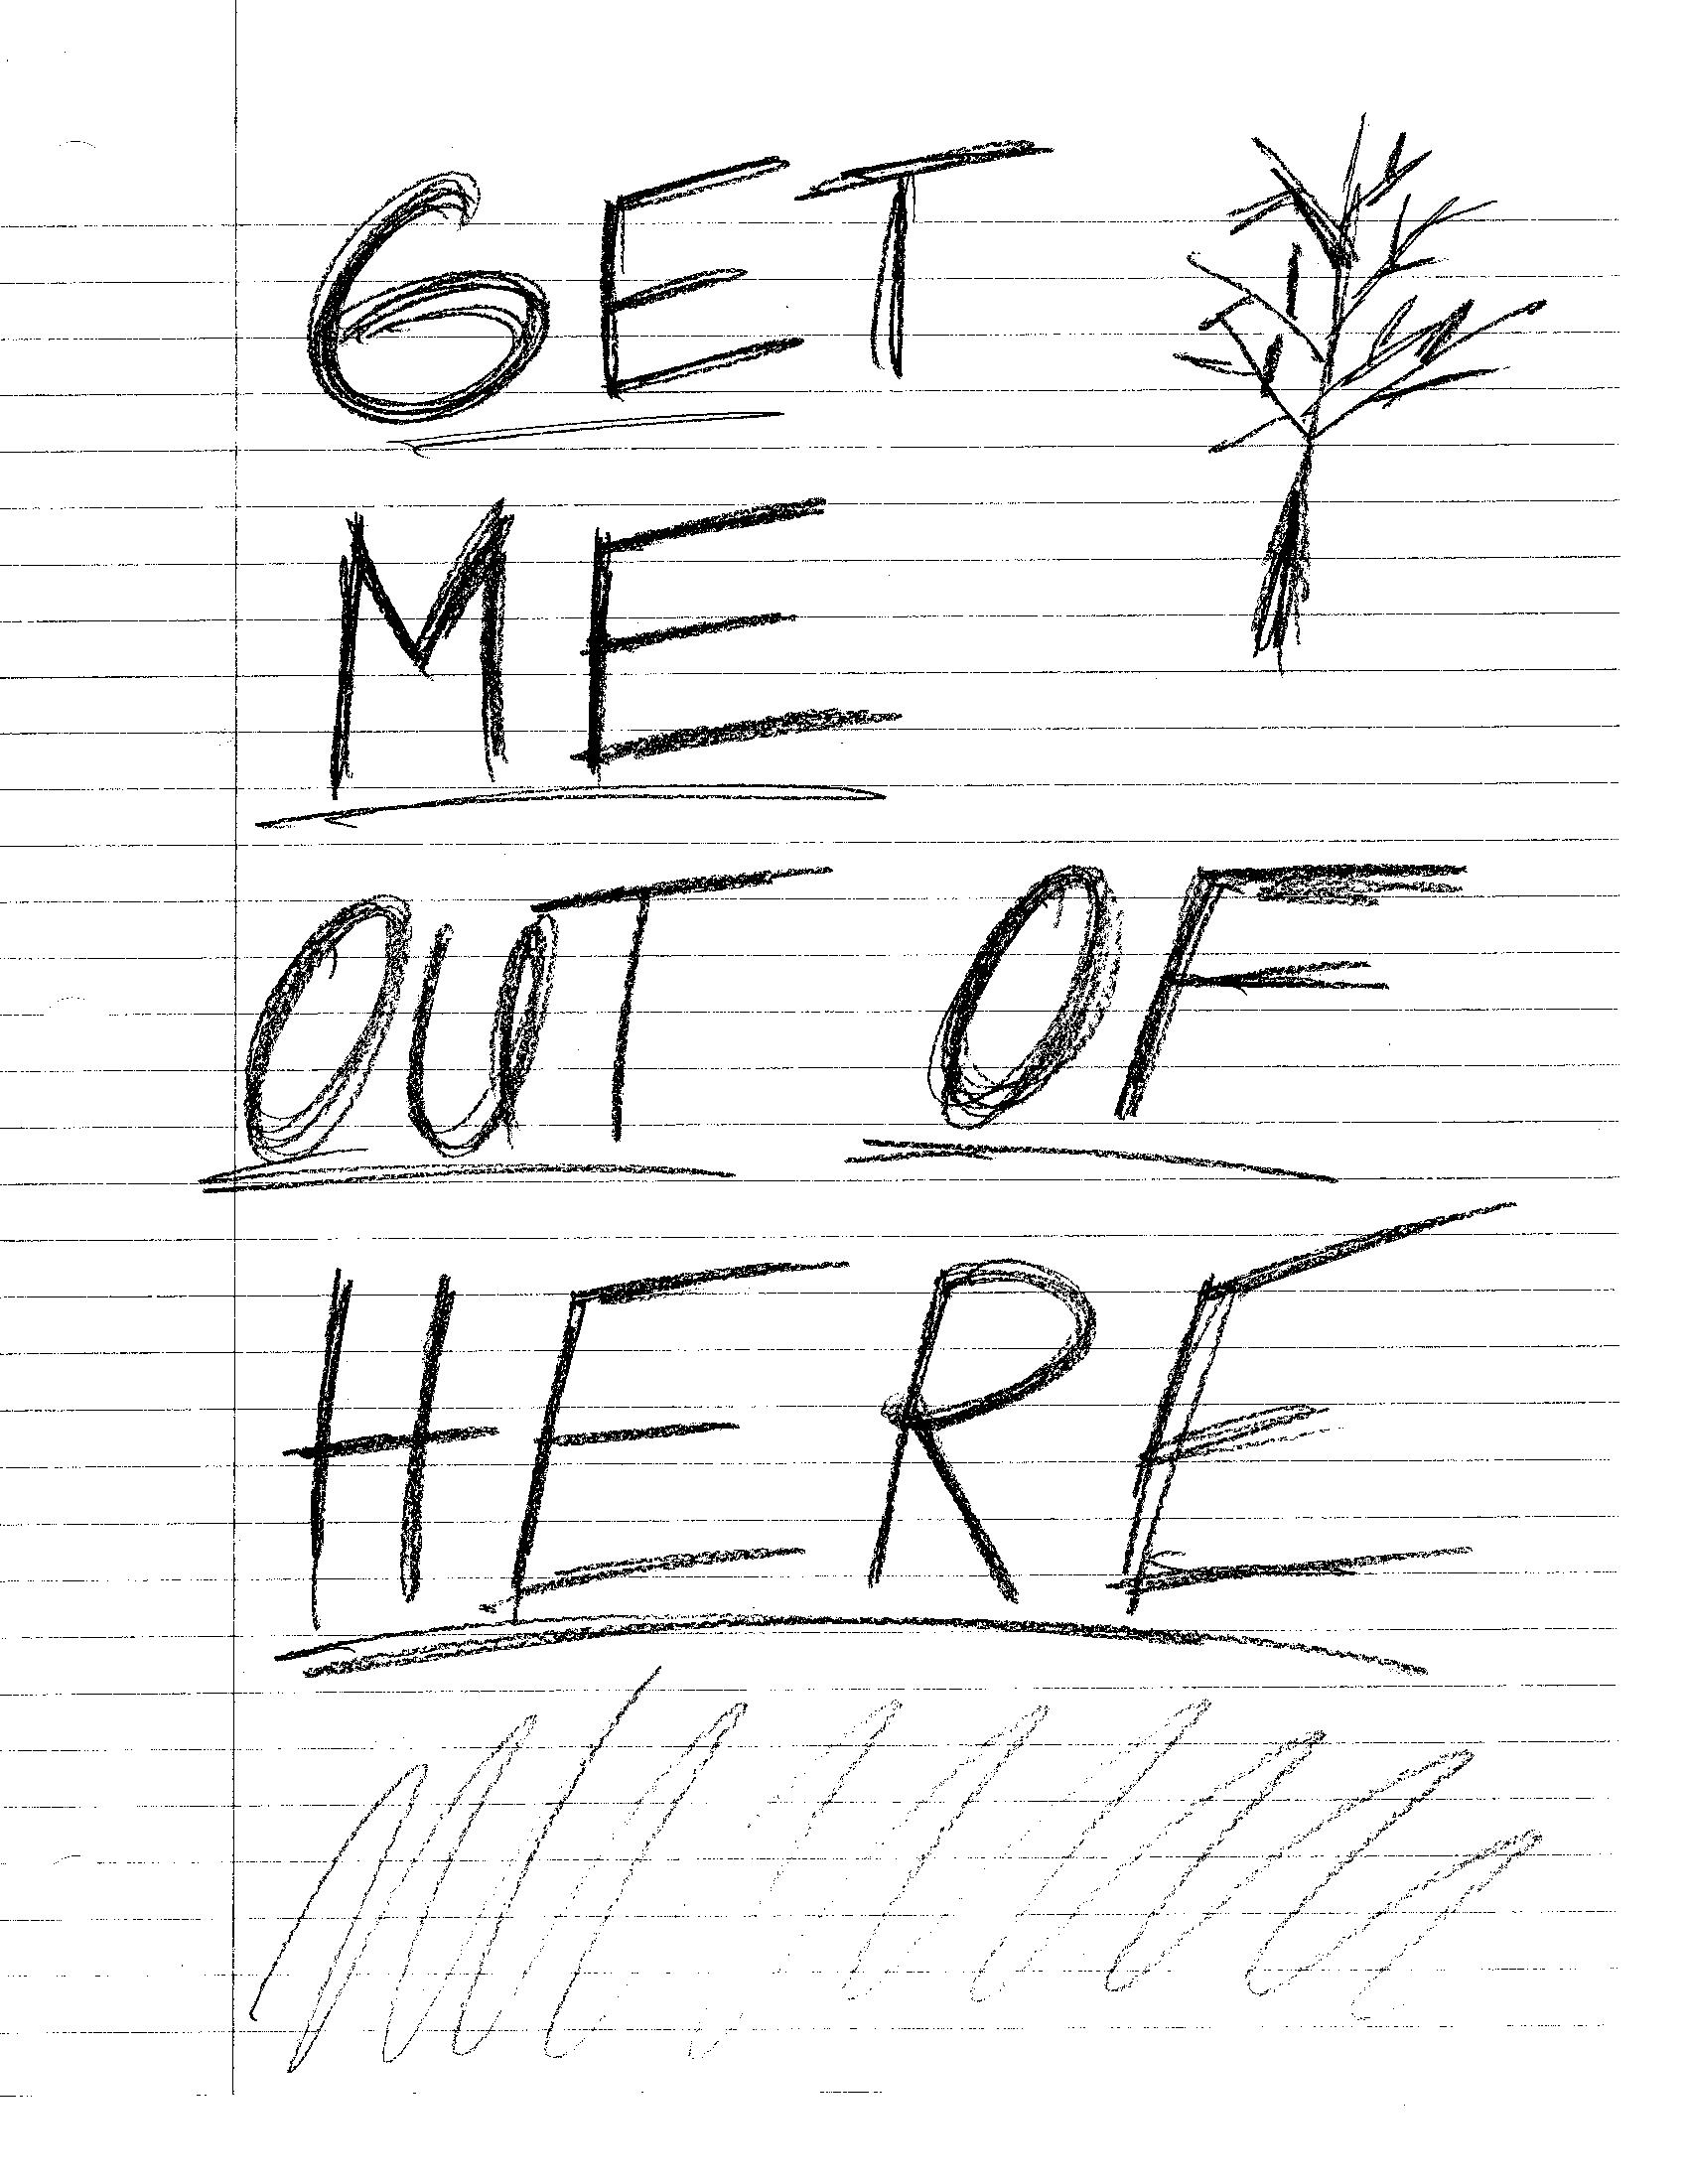 GET
ME
OUT OF
HERE